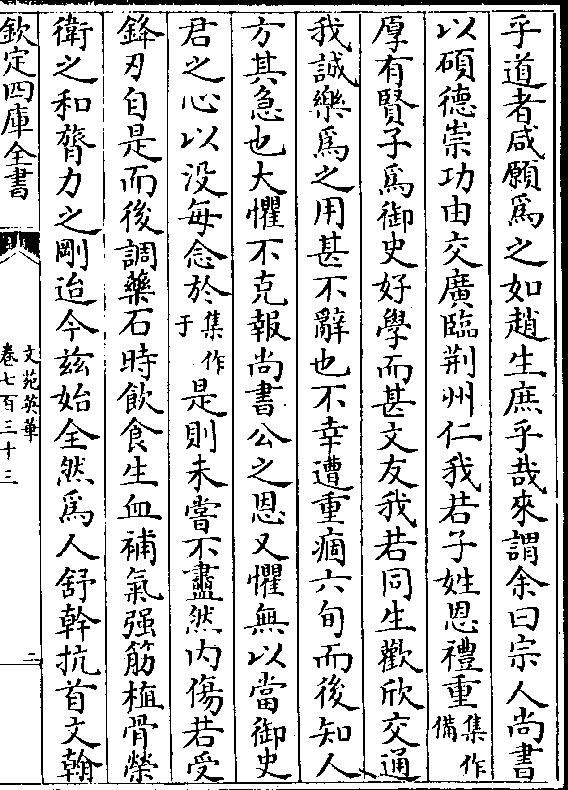 乎道者咸願爲之如趙生庶乎哉來謂余曰宗人尚書
以碩德崇功由交廣臨荆州仁我若子姓恩禮重集作備
厚有賢子爲御史好學而甚文友我若同生歡欣交通
我誠樂爲之用甚不辭也不幸遭重痼六旬而後知人
方其急也大懼不克報尚書公之恩又懼無以當御史
君之心以没每念於集作于是則未嘗不盡然内傷若受
鋒刃自是而後調藥石時飲食生血補氣强筋植骨榮
衛之和膂力之剛迨今兹始全然爲人舒幹抗首文翰
欽定四庫全書
文苑英華
卷七百三十三
二